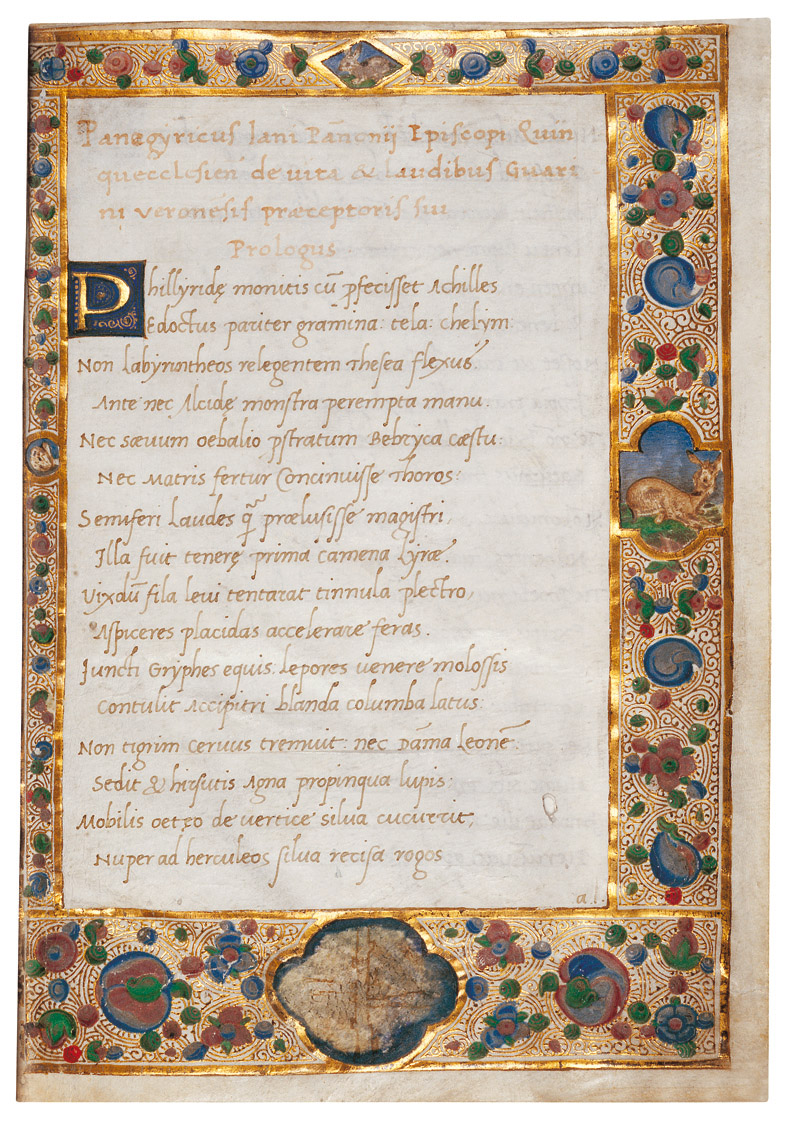 Panegyricus Iani Pan̄onij Episcopi Quin
quecclesien̄ de uita & laudibus Guari
ni veronesis præceptoris sui
Prologus
Phillyridę monitis cū ꝑfecisset Achilles
Edoctus pariter gramina: tela: chelym:
Non Labyrintheos relegentem Thesea flexus
Ante nec Alcidę monstra perempta manu.
Nec sæuum oebalio ꝓstratum Bebryca cæstu:
Nec Matris fertur Concinuisse Thoros:
Semiferi Laudes q̄ prælusisse magistri,
Illa fuit tenerę prima camena Lyræ.
Vixdū fila leui tentarat tinnula plectro,
Aspiceres placidas accelerare feras.
Juncti Gryphes equis. Lepores uenere molossis
Contulit Accipitri blanda columba latus:
Non tigrim Ceruus tremuit: nec Dāma Leonē:
Sedit & hirsutis Agna propinqua lupis:
Mobilis oetęo de uertice silua cucurrit,
Nuper ad herculeos silua recisa rogos
a 1